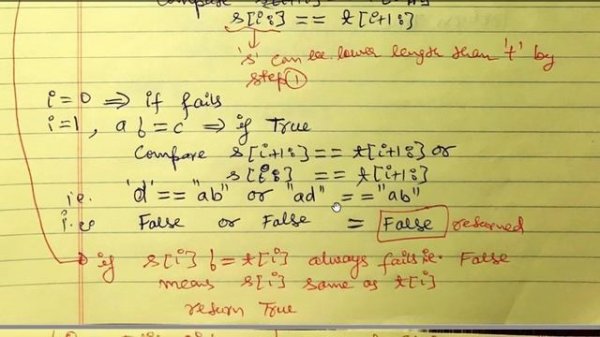 s[i:] == t[i+1:]
's' can be lower length than 't' by
step ①
i=0 ⇒ if fails
i=1, a b=c ⇒ if True
Compare s[i+1:] == t[i+1:] or
s[i:] == t[i+1:]
i.e. 'd' == "ab" or "ad" == "ab"
i.e False or False = False returned
if s[i] b= t[i] always fails i.e. False
means s[i] same as t[i]
return True